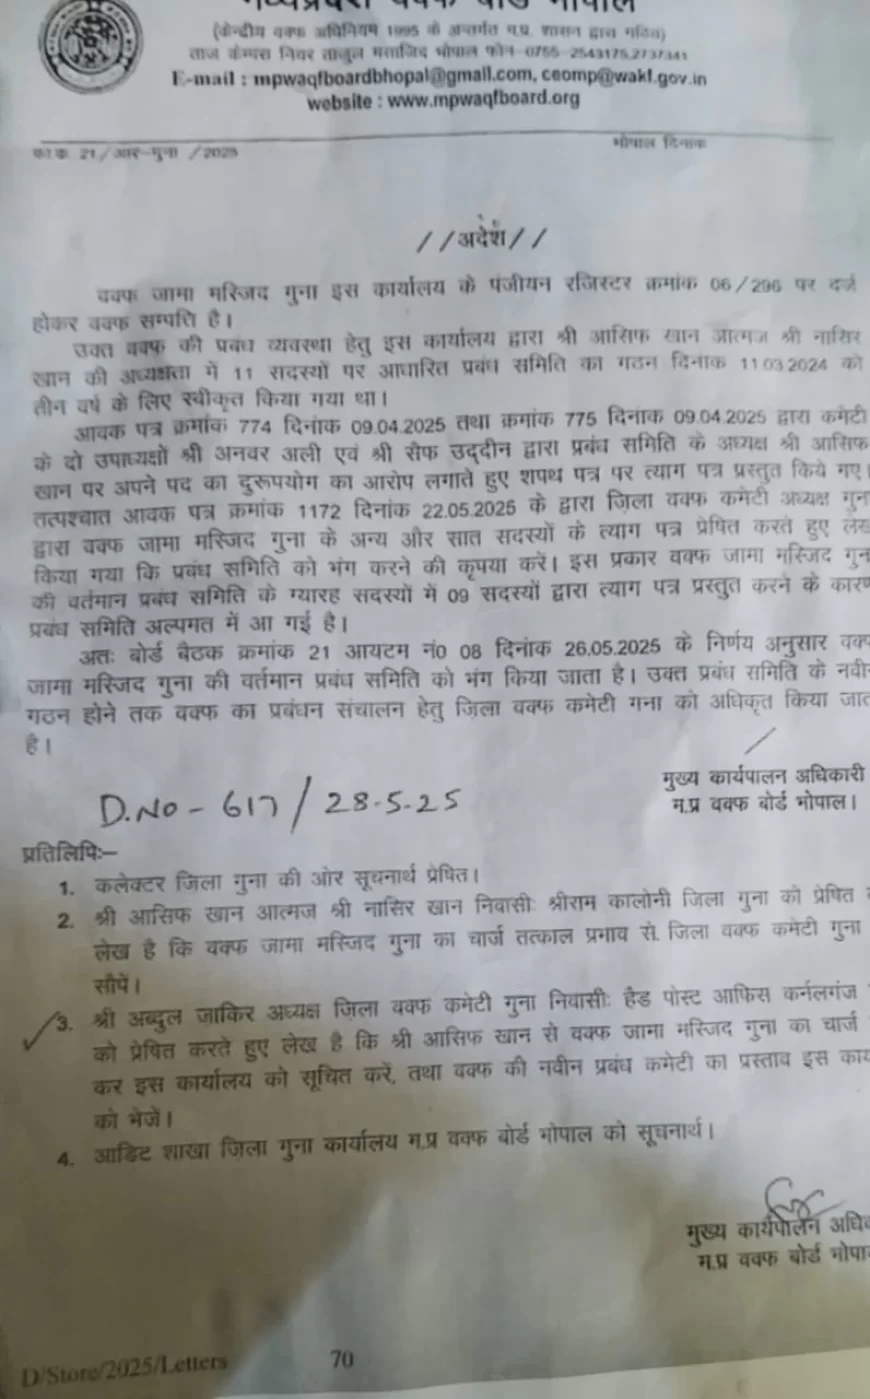 मध्यप्रदेश वक्फ बोर्ड भोपाल
(केन्द्रीय वक्फ अधिनियम 1995 के अन्तर्गत म.प्र. शासन द्वारा गठित)
ताज कम्पस नियर ताजुल मसाजिद भोपाल फोन-0755-2543175,2737341
E-mail : mpwaqfboardbhopal@gmail.com, ceomp@wakf.gov.in
website : www.mpwaqfboard.org
फा.क्र 21/आर-गुना /2025
भोपाल दिनाक
//अदेश//
वक्फ जामा मस्जिद गुना इस कार्यालय के पंजीयन रजिस्टर क्रमांक 06/296 पर दर्ज
होकर वक्फ सम्पति है।
उक्त वक्फ की प्रबंध व्यवस्था हेतु इस कार्यालय द्वारा श्री आसिफ खान आत्मज श्री नासिर
खान की अध्यक्षता में 11 सदस्यों पर आधारित प्रबंध समिति का गठन दिनाक 11.03.2024 को
तीन वर्ष के लिए स्वीकृत किया गया था।
आवक पत्र क्रमांक 774 दिनांक 09.04.2025 तथा क्रमांक 775 दिनांक 09.04.2025 द्वारा कमेटी
के दो उपाध्यक्षों श्री अनवर अली एवं श्री सैफ उद्दीन द्वारा प्रबंध समिति के अध्यक्ष श्री आसिफ
खान पर अपने पद का दुरूपयोग का आरोप लगाते हुए शपथ पत्र पर त्याग पत्र प्रस्तुत किये गए।
तत्पश्चात आवक पत्र क्रमांक 1172 दिनांक 22.05.2025 के द्वारा ज़िला वक्फ कमेटी अध्यक्ष गुना
द्वारा वक्फ जामा मस्जिद गुना के अन्य और सात सदस्यों के त्याग पत्र प्रेषित करते हुए लेख
किया गया कि प्रबंध समिति को भंग करने की कृपया करें। इस प्रकार वक्फ जामा मस्जिद गुना
की वर्तमान प्रबंध समिति के ग्यारह सदस्यों में 09 सदस्यों द्वारा त्याग पत्र प्रस्तुत करने के कारण
प्रबंध समिति अल्पमत में आ गई है।
अतः बोर्ड बैठक क्रमांक 21 आयटम नं0 08 दिनांक 26.05.2025 के निर्णय अनुसार वक्फ
जामा मस्जिद गुना की वर्तमान प्रबंध समिति को भंग किया जाता है। उक्त प्रबंध समिति के नवीन
गठन होने तक वक्फ का प्रबंधन संचालन हेतु ज़िला वक्फ कमेटी गना को अधिकृत किया जाता
है।
मुख्य कार्यपालन अधिकारी
म.प्र वक्फ बोर्ड भोपाल।
D.No - 617/28-5-25
प्रतिलिपिः–
1. कलेक्टर ज़िला गुना की ओर सूचनार्थ प्रेषित।
2. श्री आसिफ खान आत्मज श्री नासिर खान निवासीः श्रीराम कालोनी ज़िला गुना को प्रेषित
लेख है कि वक्फ जामा मस्जिद गुना का चार्ज तत्काल प्रभाव से. ज़िला वक्फ कमेटी गुना
सौपें।
3. श्री अब्दुल ज़ाकिर अध्यक्ष ज़िला वक्फ कमेटी गुना निवासीः हैड पोस्ट आफिस कर्नलगंज
को प्रेषित करते हुए लेख है कि श्री आसिफ खान से वक्फ जामा मस्जिद गुना का चार्ज
कर इस कार्यालय को सूचित करें, तथा वक्फ की नवीन प्रबंध कमेटी का प्रस्ताव इस कार्या
को भेजें।
4. आडिट शाखा ज़िला गुना कार्यालय म.प्र वक्फ बोर्ड भोपाल को सूचनार्थ।
मुख्य कार्यपालन अधिक
म.प्र वक्फ बोर्ड भोपा
D/Store/2025/Letters
70